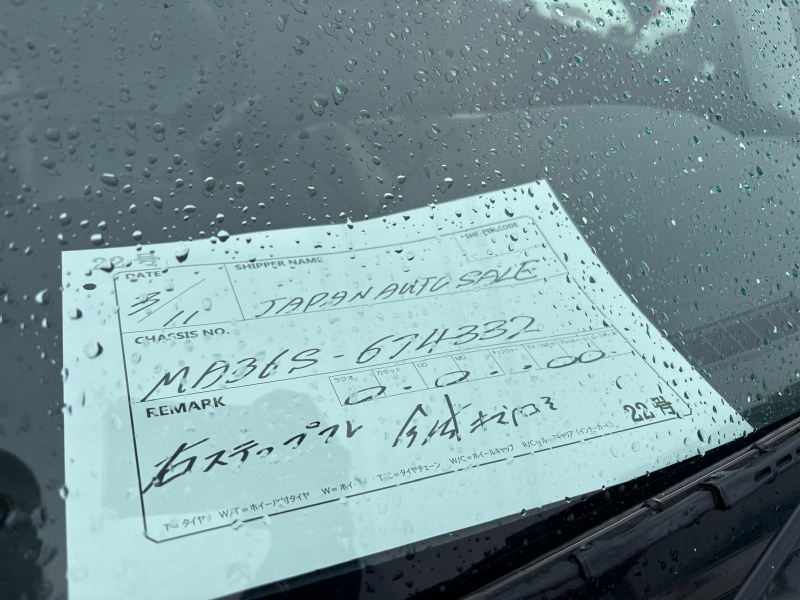 22号
DATE SHIPPER NAME
3/11 JAPAN AUTO SALE
CHASSIS NO.
MA36S-674332
REMARK ラジオ カセット CD MD
右ステップフレ 全体キズ凹ミ
22号
T=タイヤ W/T=ホイール付タイヤ W=ホイール T_C=タイヤチェーン W/C=ホイールキャップ